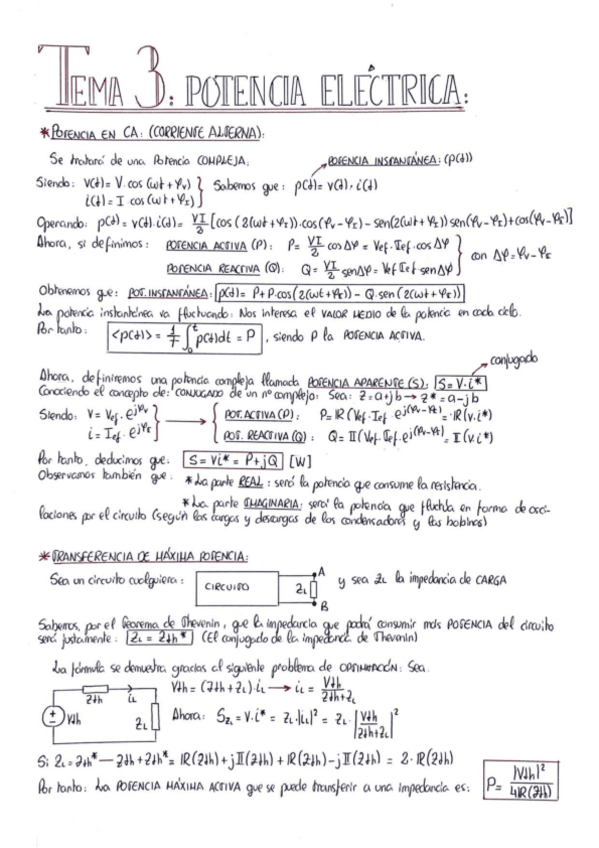 TEMA 3: POTENCIA ELÉCTRICA:
*POTENCIA EN CA: (CORRIENTE ALTERNA):
Se tratará de una Potencia COMPLEJA:
POTENCIA INSTANTÁNEA: (p(t))
Siendo: v(t) = V·cos(ωt + φv)
i(t) = I·cos(ωt + φI)
Sabemos que: p(t) = v(t)·i(t)
Operando: p(t) = v(t)·i(t) = VI/2 [cos(2(ωt+φI))·cos(φv-φI) - sen(2(ωt+φI)) sen(φv-φI) + cos(φv-φI)]
Ahora, si definimos: POTENCIA ACTIVA (P): P = VI/2 cosΔφ = Vef·Ief·cosΔφ
POTENCIA REACTIVA (Q): Q = VI/2 senΔφ = Vef Ief·senΔφ
con Δφ = φv-φI
Obtenemos que: POT. INSTANTÁNEA: p(t) = P + P·cos(2(ωt+φI)) - Q·sen(2(ωt+φI))
La potencia instantánea va fluctuando: Nos interesa el VALOR MEDIO de la potencia en cada ciclo.
Por tanto: <p(t)> = 1/T ∫₀ᵗ p(t)dt = P , siendo P la POTENCIA ACTIVA.
conjugado
Ahora, definiremos una potencia compleja llamada POTENCIA APARENTE (S): S = V·i*
Conociendo el concepto de: CONJUGADO de un nº complejo: Sea: z = a+jb → z* = a-jb
Siendo: V = Vef·e^jφv
i = Ief·e^jφI
POT. ACTIVA (P): P = IR(Vef·Ief·e^j(φv-φI)) = IR(v.i*)
POT. REACTIVA (Q): Q = II(Vef.Ief.e^j(φv-φI)) = II(v.i*)
Por tanto, deducimos que: S = Vi* = P + jQ [W]
Observamos también que: *La parte REAL: será la potencia que consume la resistencia.
*La parte IMAGINARIA: será la potencia que fluctúa en forma de osci-
laciones por el circuito (según las cargas y descargas de los condensadores y las bobinas)
*TRANSFERENCIA DE MÁXIMA POTENCIA:
Sea un circuito cualquiera: CIRCUITO ZL A B y sea ZL la impedancia de CARGA
Sabemos, por el Teorema de Thevenin, que la impedancia que podrá consumir más POTENCIA del circuito
será justamente: ZL = Zth* (El conjugado de la impedancia de Thevenin)
La fórmula se demuestra gracias al siguiente problema de OPTIMIZACIÓN: Sea.
Zth iL Vth ZL
Vth = (Zth+ZL)·iL → iL = Vth/(Zth+ZL)
Ahora: SZL = V·i* = ZL·|iL|² = ZL·|Vth/(Zth+ZL)|²
Si ZL = Zth* — Zth + Zth* = IR(Zth) + jII(Zth) + IR(Zth) - jII(Zth) = 2·IR(Zth)
Por tanto: La POTENCIA MÁXIMA ACTIVA que se puede transferir a una impedancia es: P = |Vth|²/4IR(Zth)